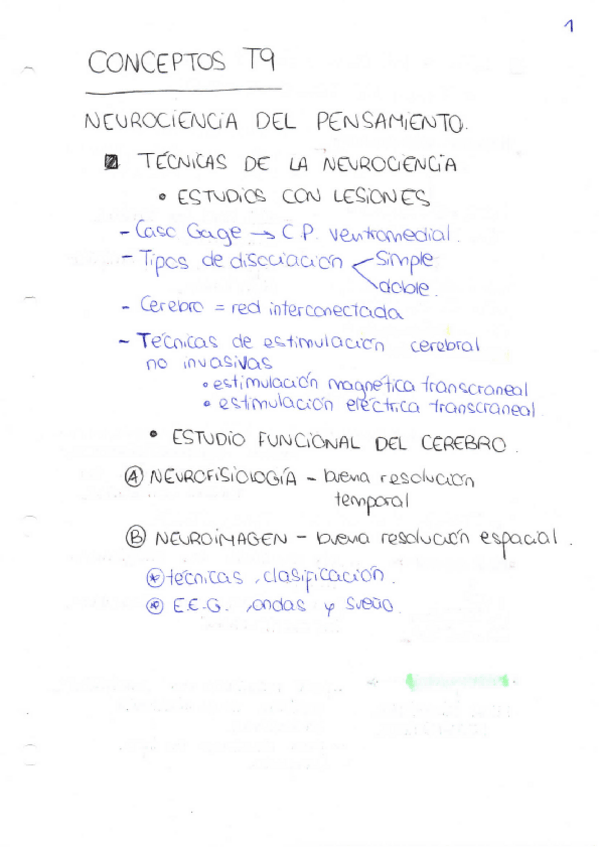 1
CONCEPTOS T9
NEUROCIENCIA DEL PENSAMIENTO.
TÉCNICAS DE LA NEUROCIENCIA
• ESTUDIOS CON LESIONES
- Caso Gage → C.P. ventromedial.
- Tipos de disociación < Simple
doble.
- Cerebro = red interconectada
- Técnicas de estimulación cerebral
no invasivas
• estimulación magnética transcraneal
• estimulación eléctrica transcraneal
• ESTUDIO FUNCIONAL DEL CEREBRO.
Ⓐ NEUROFISIOLOGÍA - buena resolución
temporal
Ⓑ NEUROIMAGEN - buena resolución espacial.
* técnicas, clasificación.
* E.E.G., ondas y sueño.